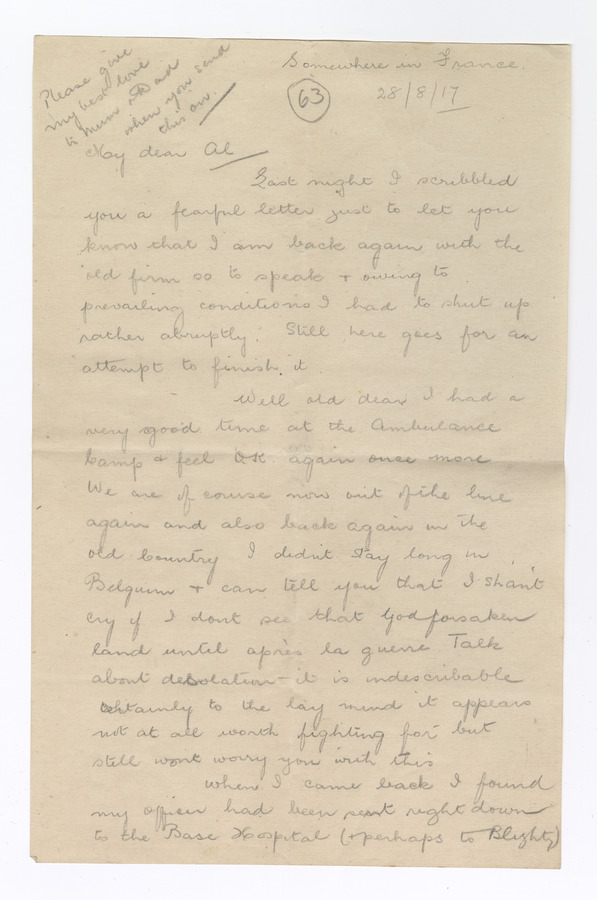 Please give
my best love
to Mum & Dad
when you send
this on.
Somewhere in France.
63
28/8/17
My dear Al
Last night I scribbled
you a fearful letter just to let you
know that I am back again with the
old firm so to speak & owing to
prevailing conditions I had to shut up
rather abruptly. Still here goes for an
attempt to finish it.
Well old dear I had a
very good time at the Ambulance
Camp & feel O.K. again once more
We are of course now out of the line
again and also back again in the
old Country I didn't stay long in
Belguim & can tell you that I shan't
cry if I dont see that Godforsaken
land until après la guerre Talk
about desolation - it is indescribable
certainly to the lay mind it appears
not at all worth fighting for but
still wont worry you with this
When I came back I found
my officer had been sent right down
to the Base Hospital (& perhaps to Blighty)